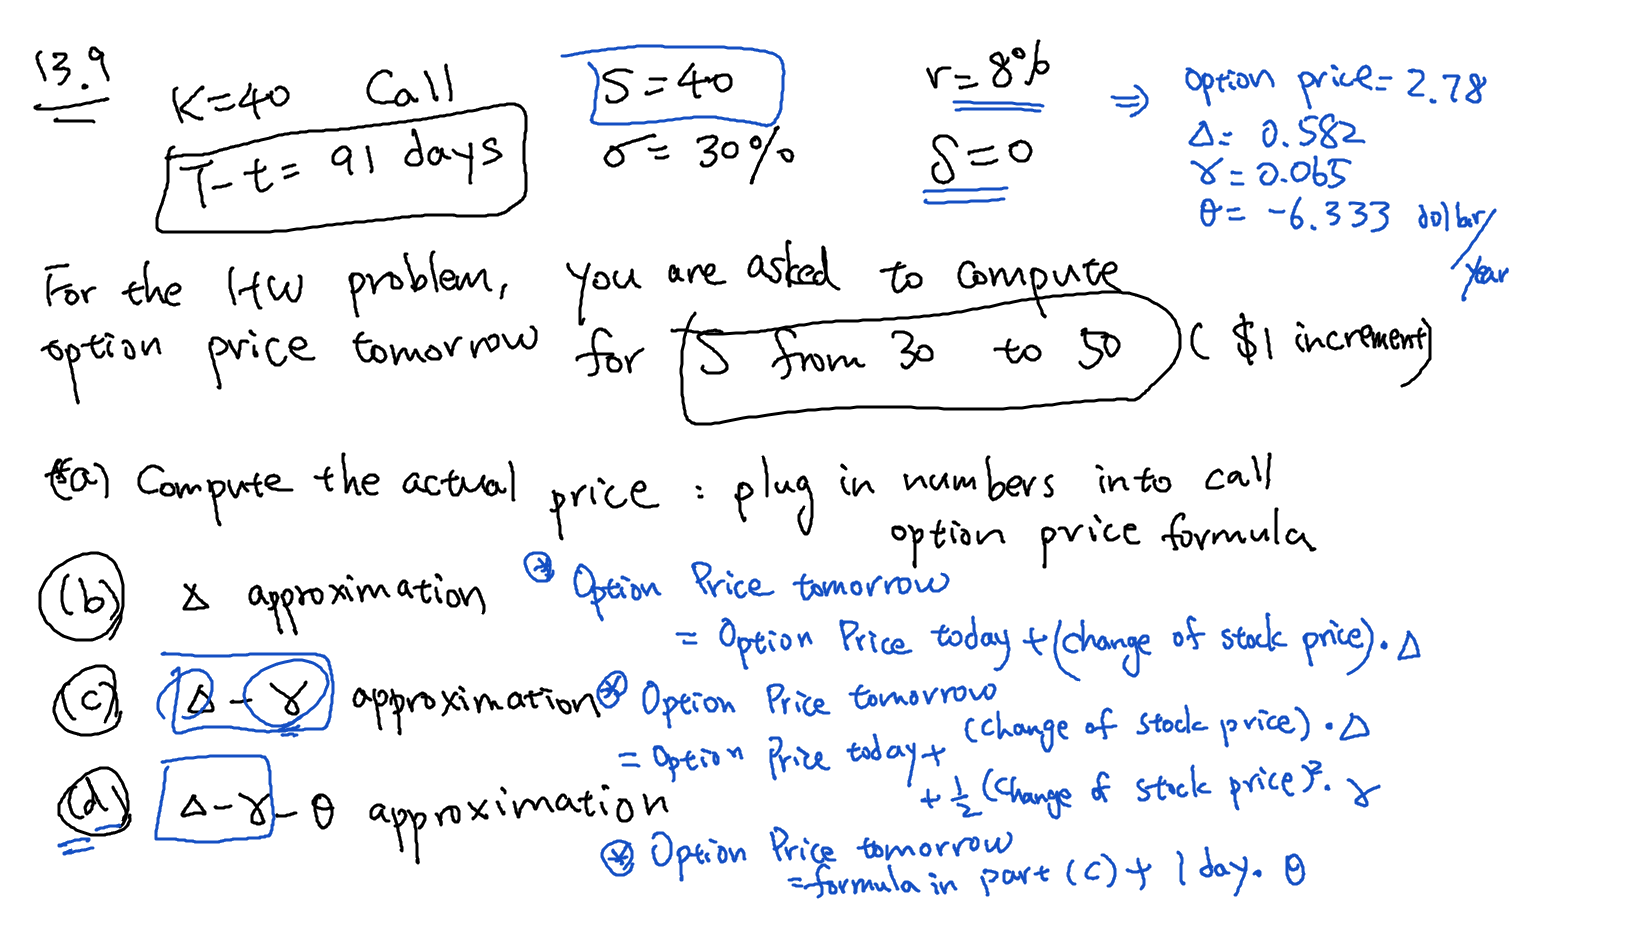 13.9
K=40 Call S=40 r=8%
T-t= 91 days σ=30% δ=0
⇒ option price= 2.78
Δ= 0.582
γ= 0.065
θ= -6.333 dollar/year
For the HW problem, you are asked to compute
option price tomorrow for S from 30 to 50 ( $1 increment)
(a) Compute the actual price : plug in numbers into call
option price formula
(b) Δ approximation ⊛ Option Price tomorrow
= Option Price today + (change of stock price) · Δ
(c) Δ-γ approximation ⊛ Option Price tomorrow
= Option Price today + (change of stock price) · Δ
+ 1/2 (change of stock price)². γ
(d) Δ-γ-θ approximation
⊛ Option Price tomorrow
= formula in part (c) + 1 day. θ